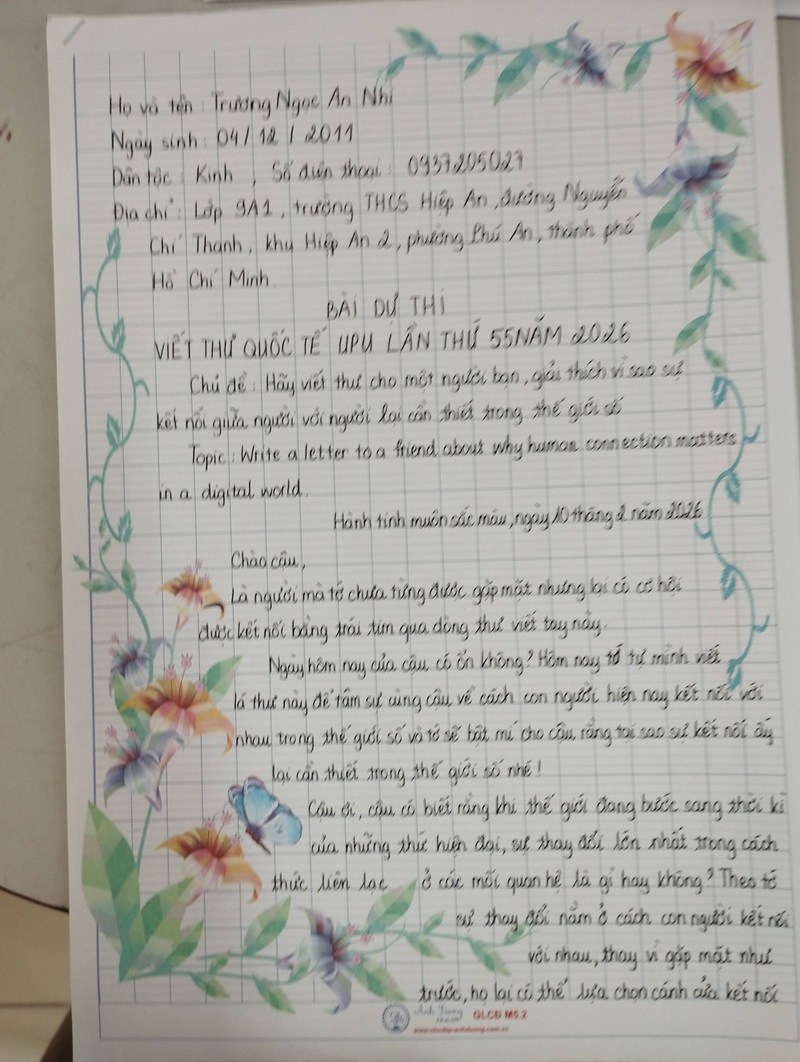 Họ và tên : Trương Ngọc An Nhi
Ngày sinh : 04 / 12 / 2011
Dân tộc : Kinh , Số điện thoại : 0937205027
Địa chỉ : Lớp 9A1, trường THCS Hiệp An, đường Nguyễn
Chí Thanh, khu Hiệp An 2, phường Phú An, thành phố
Hồ Chí Minh.
BÀI DỰ THI
VIẾT THƯ QUỐC TẾ UPU LẦN THỨ 55 NĂM 2026
Chủ đề : Hãy viết thư cho một người bạn, giải thích vì sao sự
kết nối giữa người với người lại cần thiết trong thế giới số
Topic : Write a letter to a friend about why human connection matters
in a digital world.
Hành tinh muôn sắc màu, ngày 10 tháng 2 năm 2026
Chào cậu,
Là người mà tớ chưa từng được gặp mặt nhưng lại có cơ hội
được kết nối bằng trái tim qua dòng thư viết tay này.
Ngày hôm nay của cậu có ổn không? Hôm nay tớ tự mình viết
lá thư này để tâm sự cùng cậu về cách con người hiện nay kết nối với
nhau trong thế giới số và tớ sẽ bật mí cho cậu rằng tại sao sự kết nối ấy
lại cần thiết trong thế giới số nhé!
Cậu ơi, cậu có biết rằng khi thế giới đang bước sang thời kì
của những thứ hiện đại, sự thay đổi lớn nhất trong cách
thức liên lạc ở các mối quan hệ là gì hay không? Theo tớ
sự thay đổi nằm ở cách con người kết nối
với nhau, thay vì gặp mặt như
trước, họ lại có thể lựa chọn cánh cửa kết nối
QLCD M5.2